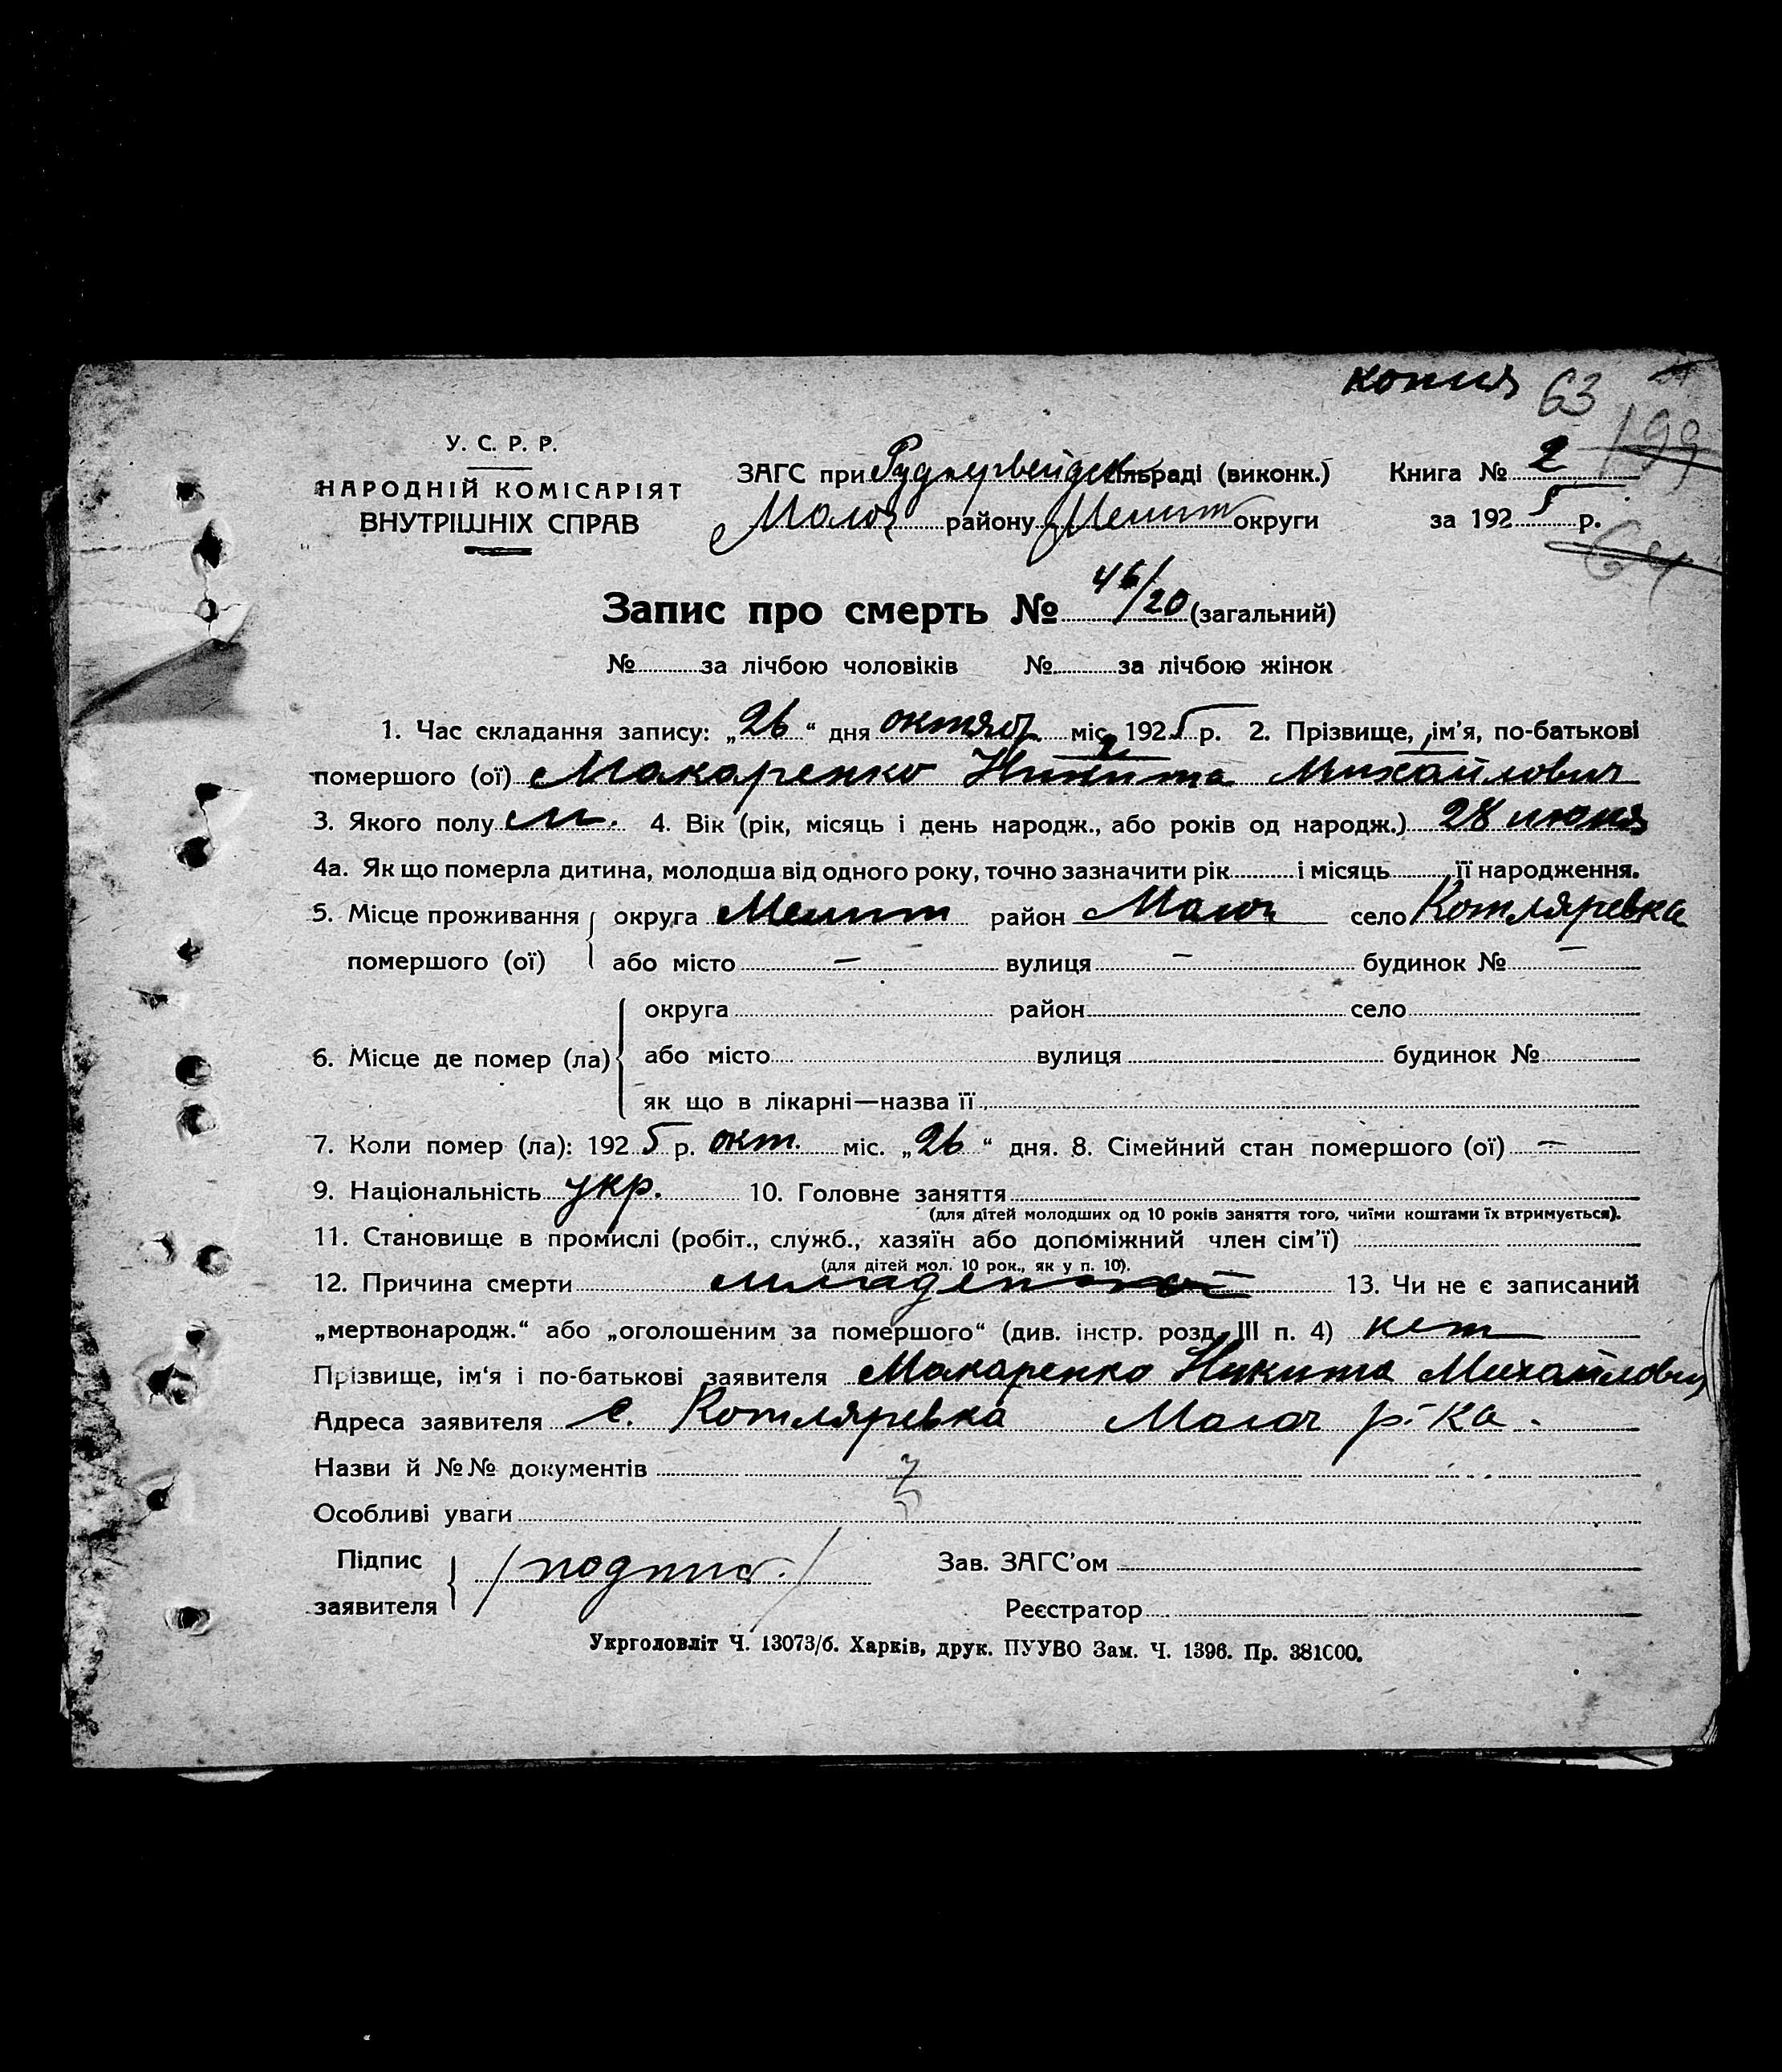 копия 63
199
У. С. Р. Р.
НАРОДНІЙ КОМІСАРІЯТ
ВНУТРІШНІХ СПРАВ
ЗАГС при Руднервейдск сільраді (виконк.) Книга № 2
Молоч району Мелит округи за 1925 р.
64
Запис про смерть № 46/20 (загальний)
№ за лічбою чоловіків № за лічбою жінок
1. Час складання запису: „26“ дня октяб міс. 1925 р. 2. Прізвище, ім'я, по-батькові
помершого (ої) Макаренко Никита Михайлович
3. Якого полу м. 4. Вік (рік, місяць і день народж., або років од народж.) 28 июня
4а. Як що померла дитина, молодша від одного року, точно зазначити рік і місяць її народження.
5. Місце проживання округа Мелит район Молоч село Котляревка
помершого (ої) або місто — вулиця — будинок № —
округа район село
6. Місце де помер (ла) або місто вулиця будинок №
як що в лікарні—назва її
7. Коли помер (ла): 1925 р. окт. міс. „26“ дня. 8. Сімейний стан помершого (ої) —
9. Національність укр. 10. Головне заняття
(для дітей молодших од 10 років заняття того, чиїми коштами їх втримується).
11. Становище в промислі (робіт., служб., хазяїн або допоміжний член сім'ї)
(для дітей мол. 10 рок., як у п. 10).
12. Причина смерти 13. Чи не є записаний
„мертвонародж.“ або „оголошеним за помершого“ (див. інстр. розд. III п. 4) нет
Прізвище, ім'я і по-батькові заявителя Макаренко Никита Михайлович
Адреса заявителя с. Котляревка Молоч р-ка.
Назви й №№ документів
Особливі уваги
Підпис /подпись/ Зав. ЗАГС'ом
заявителя Реєстратор
Укрголовліт Ч. 13073/б. Харків, друк. ПУУВО Зам. Ч. 1396. Пр. 381000.